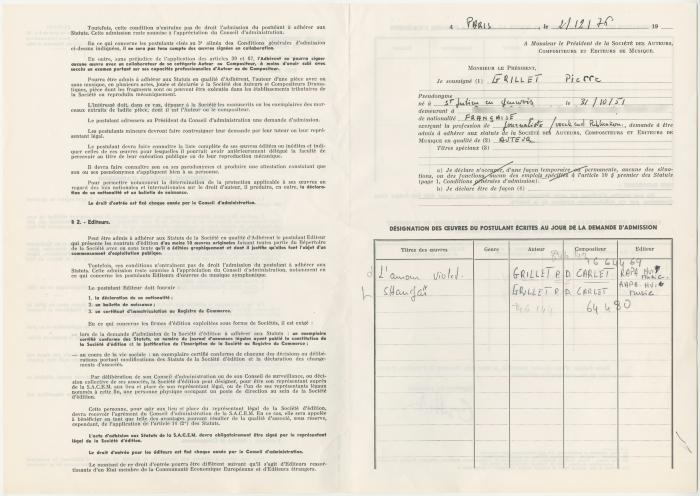 Toutefois, cette condition n'entraîne pas de droit l'admission du postulant à adhérer aux
Statuts. Cette admission reste soumise à l'appréciation du Conseil d'administration.
En ce qui concerne les postulants visés au 3° alinéa des Conditions générales d'admission
ci-dessus indiquées, il ne sera pas tenu compte des œuvres signées en collaboration.
En outre, sans préjudice de l'application des articles 20 et 67, l'Adhérent ne pourra signer
aucune œuvre avec un collaborateur de sa catégorie Auteur ou Compositeur, à moins d'avoir subi avec
succès un examen portant sur ses capacités professionnelles d'Auteur ou de Compositeur.
Pourra être admis à adhérer aux Statuts en qualité d'Adhérent, l'auteur d'une pièce avec ou
sans musique, en plusieurs actes, jouée et déclarée à la Société des Auteurs et Compositeurs Drama-
tiques, pièce dont les fragments sont ou peuvent être exécutés dans les établissements tributaires de
la Société ou reproduits mécaniquement.
L'intéressé doit, dans ce cas, déposer à la Société les manuscrits ou les exemplaires des mor-
ceaux extraits de ladite pièce, dont il est l'auteur ou le compositeur.
Le postulant adressera au Président du Conseil d'administration une demande d'admission.
Les postulants mineurs devront faire contresigner leur demande par leur tuteur ou leur représentant
légal.
Le postulant devra faire connaître la liste complète de ses œuvres éditées ou inédites et indi-
quer celles de ces œuvres pour lesquelles il pourrait avoir antérieurement délégué la faculté de
percevoir au titre de leur exécution publique ou de leur reproduction mécanique.
Il devra faire connaître son ou ses pseudonymes et produire une attestation constatant que
son ou ses pseudonymes n'appliquent bien à sa personne.
Pour permettre notamment la détermination de la protection applicable à ses œuvres en
regard des lois nationales et internationales sur le droit d'auteur, il produira, en outre, la déclara-
tion de sa nationalité et un bulletin de naissance.
Le droit d'entrée est fixé chaque année par le Conseil d'administration.
§ 2. - Editeurs.
Peut être admis à adhérer aux Statuts de la Société en qualité d'Adhérent le postulant Editeur
qui présente les contrats d'édition d'au moins 10 œuvres originales faisant toutes partie du Répertoire
de la Société avec ou sans texte qu'il a éditées graphiquement et dont il justifie qu'elles font l'objet d'un
commencement d'exploitation publique.
Toutefois, ces conditions n'entraînent pas de droit l'admission du postulant à adhérer aux
Statuts. Cette admission reste soumise à l'appréciation du Conseil d'administration, notamment en
ce qui concerne les postulants Editeurs d'œuvres de musique symphonique.
Le postulant Editeur doit fournir :
1. la déclaration de sa nationalité;
2. un bulletin de naissance;
3. un certificat d'immatriculation au Registre du Commerce.
En ce qui concerne les firmes d'édition exploitées sous forme de Sociétés, il est exigé :
— lors de la demande d'admission de la Société d'édition à adhérer aux Statuts : un exemplaire
certifié conforme des Statuts, un numéro du journal d'annonces légales ayant publié la constitution de
la Société d'édition et la justification de l'inscription de la Société au Registre du Commerce;
— au cours de la vie sociale : un exemplaire certifié conforme de chacune des décisions ou délibé-
rations portant modifications des Statuts de la Société d'édition et la déclaration des change-
ments d'associés.
Par délibération de son Conseil d'administration ou de son Conseil de surveillance, ou déci-
sion collective de ses associés, la Société d'édition peut désigner, pour être son représentant auprès
de la S.A.C.E.M. aux lieu et place de son représentant légal, ou de l'un de ses représentants légaux
nommés à cette fin, une personne physique occupant un poste de direction au sein de la Société
d'édition.
Cette personne, pour agir aux lieu et place du représentant légal de la Société d'édition,
devra recevoir l'agrément du Conseil d'administration de la S.A.C.E.M. En ce cas, elle sera appelée
à bénéficier en tant que telle des avantages pouvant résulter de la qualité d'associé, sous réserve,
cependant, de l'application de l'article 16 (2°) des Statuts.
L'acte d'adhésion aux Statuts de la S.A.C.E.M. devra obligatoirement être signé par le représentant
légal de la Société d'édition.
Le droit d'entrée pour les éditeurs est fixé chaque année par le Conseil d'administration.
Le montant de ce droit d'entrée pourra être différent suivant qu'il s'agit d'Editeurs ressor-
tissants d'un Etat membre de la Communauté Economique Européenne et d'Editeurs étrangers.
A PARIS le 2/12/76 19
A Monsieur le Président de la SOCIÉTÉ DES AUTEURS,
COMPOSITEURS ET EDITEURS DE MUSIQUE.
MONSIEUR LE PRÉSIDENT,
Je soussigné (1) GRILLET Pierre
Pseudonyme
né à St Julien en Genevois le 31/10/51
demeurant à
de nationalité FRANÇAISE
exerçant la profession de journaliste / , demande à être
admis à adhérer aux statuts de la SOCIÉTÉ DES AUTEURS, COMPOSITEURS ET EDITEURS DE
MUSIQUE en qualité de (2) AUTEUR
Titres spéciaux (3)
a) Je déclare n'occuper, d'une façon temporaire ou permanente, aucune des situa-
tions, ou des fonctions, aucun des emplois spécifiés à l'article 10 § premier des Statuts
(page 1, Conditions générales d'admission).
b) Je déclare être de façon (4)
DÉSIGNATION DES ŒUVRES DU POSTULANT ÉCRITES AU JOUR DE LA DEMANDE D'ADMISSION
Titres des œuvres Genre Auteur Compositeur Editeur
76 64 469
L'amour violet GRILLET P. D. CARLET music
Shangaï GRILLET P. D. CARLET music
64 480